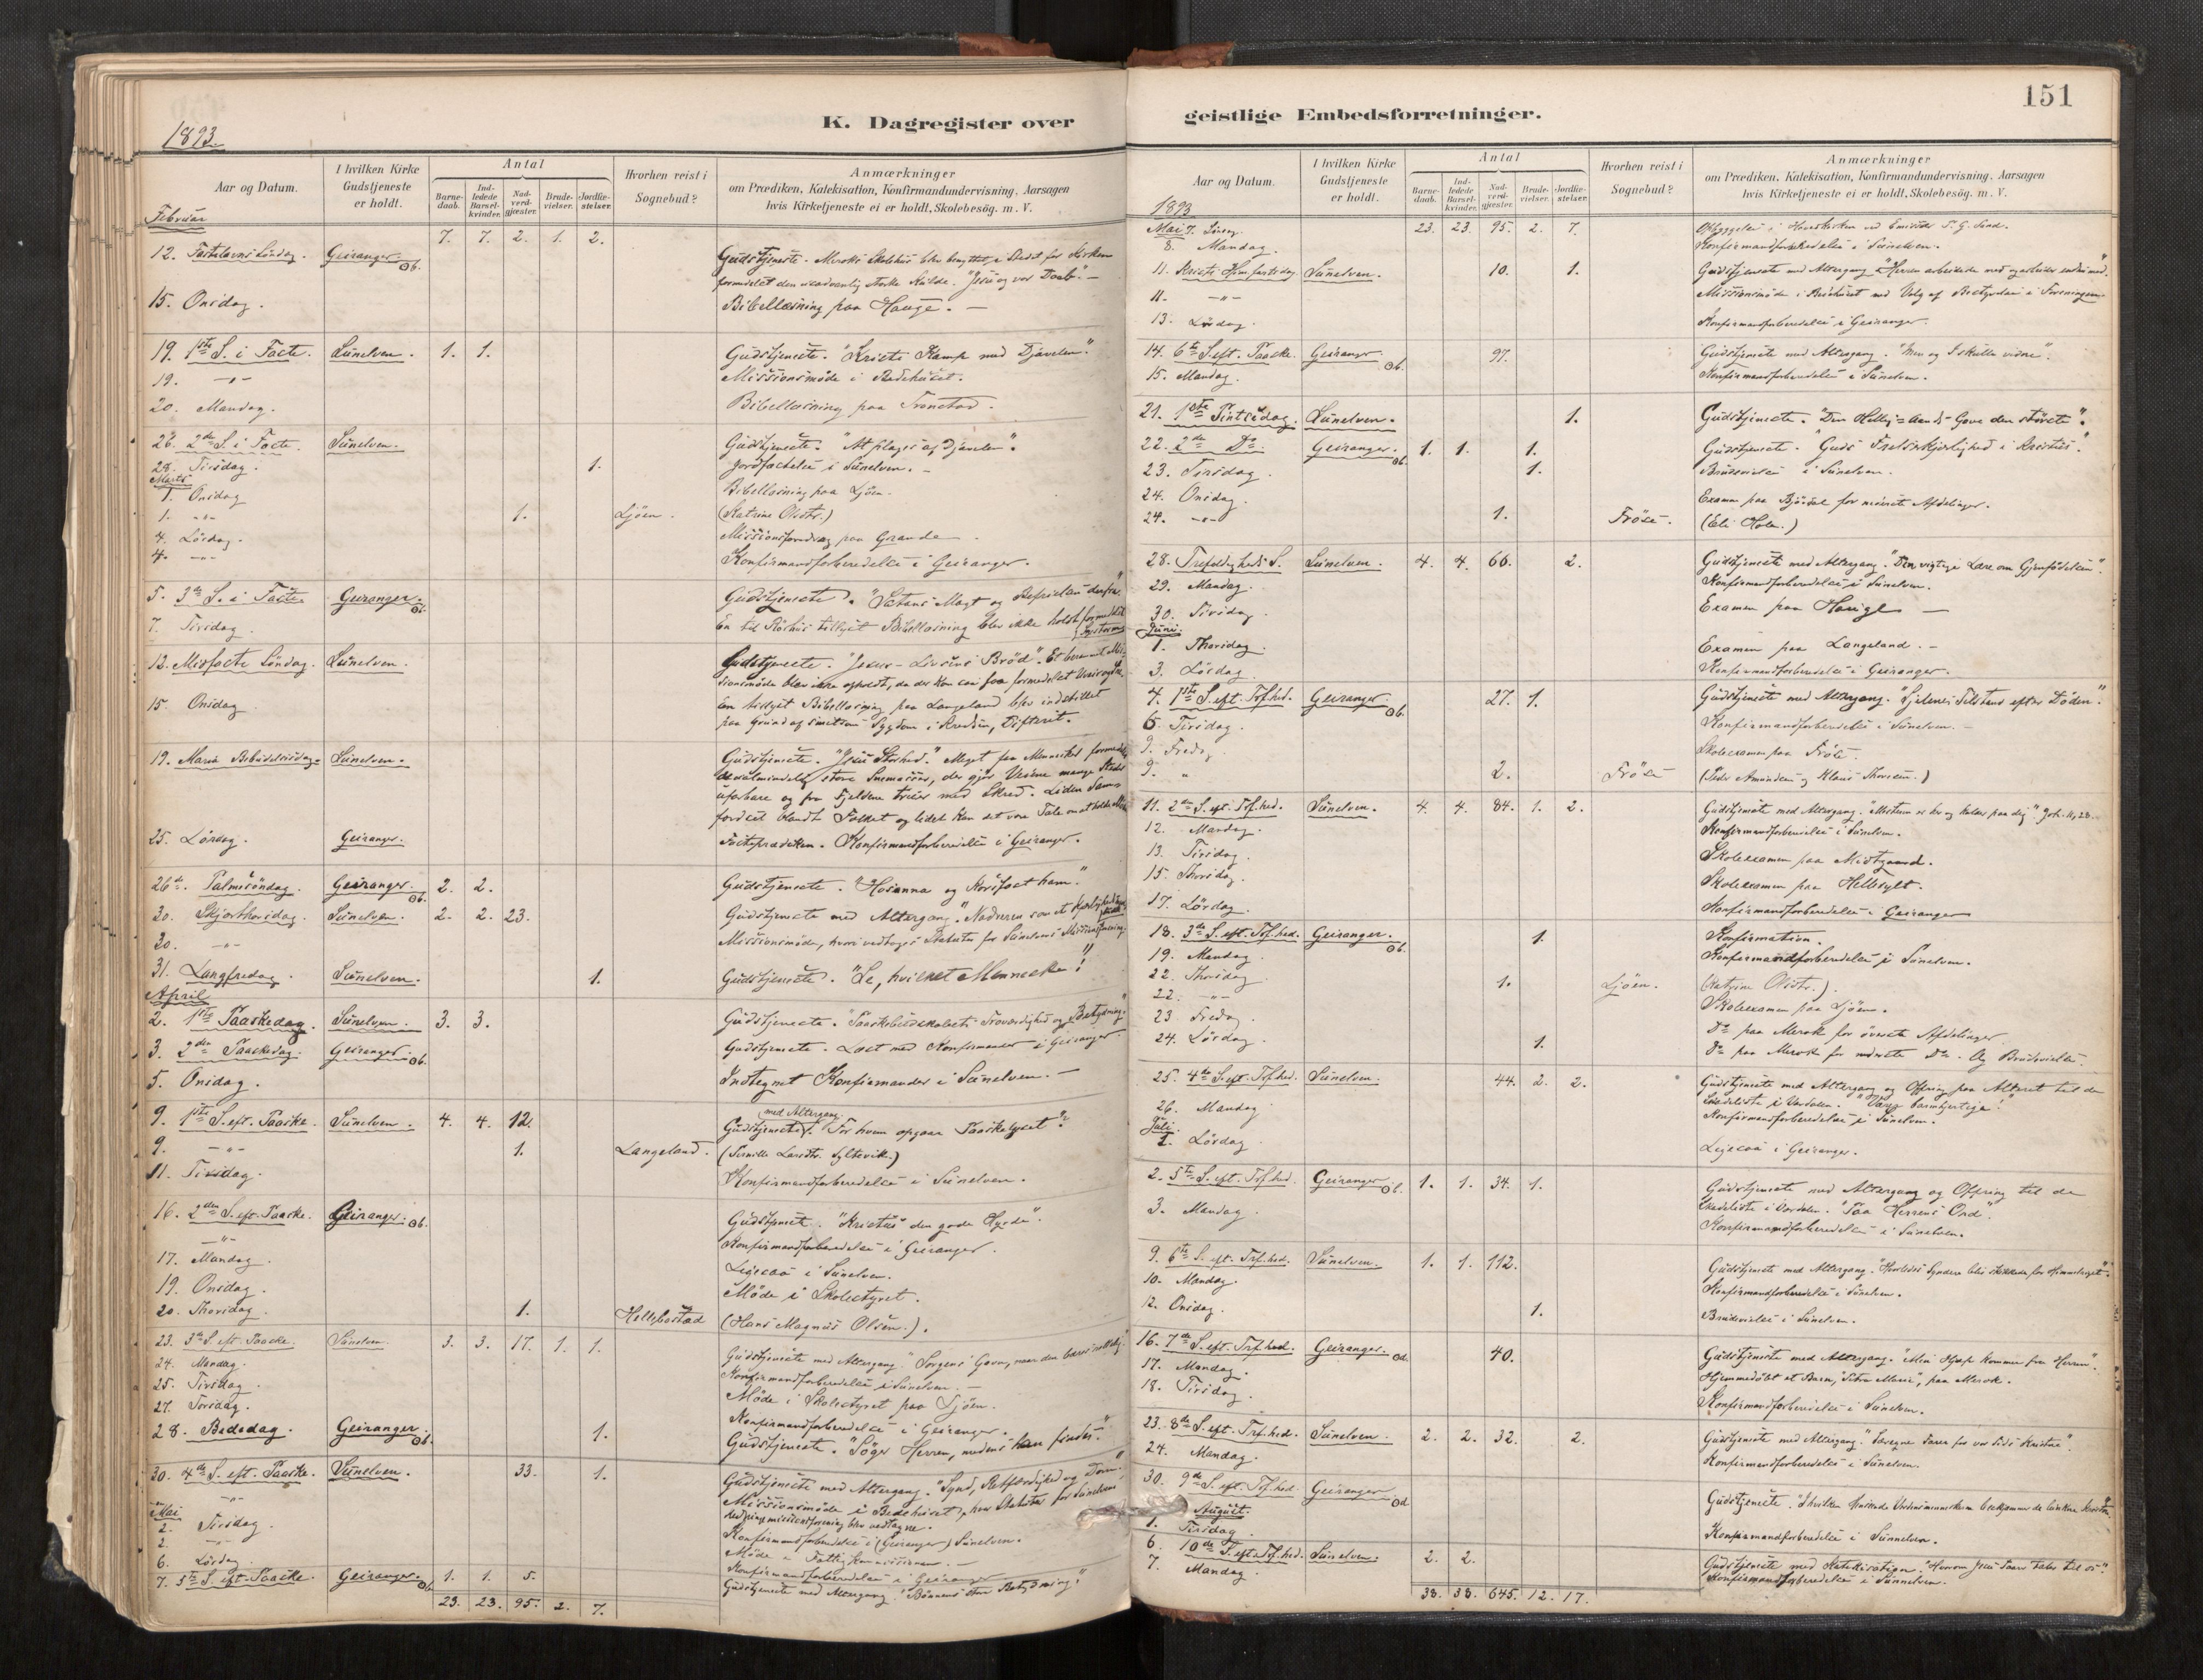 1893.
K. Dagregister over
Aar og Datum. I hvilken Kirke Gudstjeneste er holdt. Antal Hvorhen reist i Sognebud? Anmærkninger
Barnedaab. Indledede Barselkvinder. Nadverdgjæster. Brudevielser. Jordfæstelser. om Prædiken, Katekisation, Konfirmandundervisning, Aarsagen
hvis Kirketjeneste ei er holdt, Skolebesøg. m. V.
Februar
7. 7. 2. 1. 2.
12. Fastelavns Søndag. Geiranger. Ob. Gudstjeneste. Meroks Skolehus blev benyttet i Stedet for Kirken
formedelst den usædvanlig stærke Kulde. "Jesu og vor Daab". —
15. Onsdag. Bibellæsning paa Hauge. —
19. 1ste S. i Faste. Sunelven. 1. 1. Gudstjeneste. "Kristi Kamp med Djævelen."
19. —"— Missionsmøde i Bedehuset.
20. Mandag. Bibellæsning paa Tronstad.
26. 2den S. i Faste. Sunelven. Gudstjeneste. "At plages af Djævelen".
28. Tirsdag. 1. Jordfæstelse i Sunelven. —
Marts
1. Onsdag Bibellæsning paa Ljøen.
1. —"— 1. Ljøen. (Katrine Olsdtr.)
4. Lørdag. Missionsforedrag paa Grande
4. —"— Konfirmandforberedelse i Geiranger.
5. 3die S. i Faste. Geiranger. Ob. Gudstjeneste. "Satans Magt og Befrielsen derfra".
7. Tirsdag. En til Rørhus tillyst Bibellæsning blev ikke holdt formedelst
12. Midfaste Søndag. Sunelven. Gudstjeneste. "Jesus – Livsens Brød". Et berammet Missionsmøde blev ikke afholdt, da der kom saa faa formedelst
15. Onsdag En tillyst Bibellæsning paa Langeland blev indstillet
paa Grund af smitsom Sygdom i Kredsen, Difterit.
19. Mariæ Bebudelsesdag. Sunelven. Gudstjeneste. "Jesu Storhed". Meget faa Mennesker formedelst
de ualmindelig store Snemasser, der gjør Veiene mange Steder
ufarbare og fra Fjeldene truer med Skred. Liden
blandt Folket og lidet kan det være Tale om at holde
25. Lørdag. Geiranger. Fasteprædiken. Konfirmandforberedelse i Geiranger.
26de. Palmesøndag. Geiranger. Ob. 2. 2. Gudstjeneste. "Hosianna og Korsfæst ham."
30. Skjærthorsdag. Sunelven. 2. 2. 23. Gudstjeneste med Altergang. "Nadveren som et
30. —"— Missionsmøde, hvori vedtages Statuter for Sunelvens Missionsforening.
31. Langfredag. Sunelven. 1. Gudstjeneste. "Se, hvilket Menneske!"
April
2. 1ste Paaskedag. Sunelven. 3. 3. Gudstjeneste. "Paaskebudskabets Troværdighed og Betydning."
3. 2den Paaskedag. Geiranger. Ob. Gudstjeneste. Læst med Konfirmander i Geiranger
5. Onsdag. Indtegnet Konfirmander i Sunelven. —
med Altergang
9. 1ste S. eft. Paaske. Sunelven. 4. 4. 12. Gudstjeneste. For hvem opgaar Paaskelyset?"
9. —"— 1. Langeland. (Pernille Larsdtr. Syltevik.)
11. Tirsdag. Konfirmandforberedelse i Sunelven.
16. 2den S. eft. Paaske. Geiranger. Ob. Gudstjeneste. "Kristus den gode Hyrde".
—"— Konfirmandforberedelse i Geiranger.
17. Mandag. Ligesaa i Sunelven.
19. Onsdag. Møde i Skolestyret.
20. Thorsdag. 1. Hellebostad (Hans Magnus Olsen.).
23. 3die S. eft. Paaske. Sunelven. 3. 3. 17. 1. 1. Gudstjeneste med Altergang. "Sorgens Gavn, naar den bæres
24. Mandag. Konfirmandforberedelse i Sunelven. —
25. Tirsdag. Møde i Skolestyret paa Ljøen.
27. Torsdag. Konfirmandforberedelse i Geiranger.
28. Bededag. Geiranger. Ob. 1. Gudstjeneste. "Søger Herren, medens han findes".
30. 4de S. eft. Paaske. Sunelven. 33. 1. Gudstjeneste med Altergang. "Synd, Retfærdighed og Dom."
—"— Missionsmøde i Bedehuset, hvor Statuter for Sunelvens
Hedningemissionsforening blev vedtagne.
Mai
2. Tirsdag. Konfirmandforberedelse i (Geiranger) Sunelven.
2. —"— Møde i Fattigkommissionen. —
6. Lørdag. Konfirmandforberedelse i Geiranger
7. 5te S. eft. Paaske. Geiranger. Ob. 1. 1. 5. Gudstjeneste med Altergang. "Bønnens store Betydning!"
23. 23. 95. 2. 7.
151
geistlige Embedsforretninger.
Aar og Datum. I hvilken Kirke Gudstjeneste er holdt. Antal Hvorhen reist i Sognebud? Anmærkninger
Barnedaab. Indledede Barselkvinder. Nadverdgjæster. Brudevielser. Jordfæstelser. om Prædiken, Katekisation, Konfirmandundervisning, Aarsagen
hvis Kirketjeneste ei er holdt, Skolebesøg. m. V.
1893
Mai 7. Sønd. 23. 23. 95. 2. 7. Opbyggelse i Hovedkirken ved Emissær
8. Mandag. Konfirmandforberedelse i Sunelven.
11. Kristi Himfartsdag. Sunelven. 10. 1. Gudstjeneste med Altergang. "Herren arbeidede med og arbeider endnu med."
11. —"— Missionsmøde i Bedehuset med Valg af Bestyrelse i Foreningen
13. Lørdag. Konfirmandforberedelse i Geiranger.
14. 6te S. eft. Paaske. Geiranger. Ob. 97. Gudstjeneste med Altergang. "Men og I skulle vidne".
15. Mandag. Konfirmandforberedelse i Sunelven.
21. 1ste Pintsedag. Sunelven. 1. Gudstjeneste. "Den Hellig-Aands-Gave den største".
22. 2den Do. Geiranger. Ob. 1. 1. 1. Gudstjeneste. "Guds Frelserkjærlighed i Kristus".
23. Tirsdag. 1. Brudevielse i Sunelven.
24. Onsdag. Examen paa for nederste Afdelinger.
24. —"— 1. Frøse. (Eli Hole.)
28. Trefoldigheds S. Sunelven. 4. 4. 66. 2. Gudstjeneste med Altergang. "Den vigtige Lære om Gjenfødelsen".
29. Mandag. Konfirmandforberedelse i Sunelven.
30. Tirsdag. Examen paa Hauge —
Juni.
1. Thorsdag. Examen paa Langeland. —
3. Lørdag. Konfirmandforberedelse i Geiranger.
4. 1ste S. eft. Tref.hed. Geiranger. Ob. 27. 1. Gudstjeneste med Altergang. "Sjelenes Tilstand efter Døden".
6. Tirsdag. Konfirmandforberedelse i Sunelven. —
9. Fredag. Skoleexamen paa Frøse.
9. " 2. Frøse (Peder Amundsen og Klaus Thorsen.)
11. 2den S. eft. Tref.hed. Sunelven. 4. 4. 84. 1. 2. Gudstjeneste med Altergang. "Mesteren er her og kalder paa dig". Joh. 11, 28.
12. Mandag. Konfirmandforberedelse i Sunelven.
13. Tirsdag. Skoleexamen paa Midtgaard.
15. Thorsdag. Skoleexamen paa Hellesylt.
17. Lørdag. Konfirmandforberedelse i Geiranger
18. 3die S. eft. Tref.hed. Geiranger. Ob. 1. Konfirmation.
19. Mandag. Konfirmandforberedelse i Sunelven.
22. Thorsdag. 1. Ljøen. (Katrine Olsdtr.).
22. —"— Skoleexamen paa Ljøen.
23. Fredag. Do paa Merok for øverste Afdelinger
24. Lørdag. 1. Do paa Merok for nederste Do. Og Brudevielse.
25. 4de S. eft. Tref.hed. Sunelven. 44. 2. 2. Gudstjeneste med Altergang og Offring paa Alteret til de
Skadeliste i Værdalen. "Værer barmhjertige!"
26. Mandag Konfirmandforberedelse i Sunelven.
Juli.
1. Lørdag. Ligesaa i Geiranger.
2. 5te S. eft. Tref.hed. Geiranger. Ob. 1. 1. 34. 1. Gudstjeneste med Altergang og Offring til de
Skadeliste i Værdalen. "Paa Herrens Ord".
3. Mandag Konfirmandforberedelse i Sunelven.
9. 6te S. eft. Tref.hed. Sunelven. 1. 1. 112. Gudstjeneste med Altergang. "Hvorledes Syndere blive skikkede for Himmeriget".
10. Mandag. Konfirmandforberedelse i Sunelven.
12. Onsdag. 1. Brudevielse i Sunelven.
16. 7de S. eft. Tref.hed. Geiranger. Od. 40. Gudstjeneste med Altergang. "Min Hjælp kommer fra Herren".
17. Mandag. Hjemmedøbt et Barn, paa Merok.
18. Tirsdag. Konfirmandforberedelse i Sunelven.
23. 8de S. eft. Tref.hed. Sunelven. 2. 2. 32. 2. Gudstjeneste med Altergang. Farer for vor Tids Kristne".
24. Mandag. Konfirmandforberedelse i Sunelven.
30. 9de S. eft. Tref.hed. Geiranger. Od Gudstjeneste.
August.
1. Tirsdag. Konfirmandforberedelse i Sunnelven.
6. 10de S. eft. Tref.hed. Sunelven. 2. 2. Gudstjeneste med Katekisation. "Hvorom Jesu Taarer taler til os".
7. Mandag. Konfirmandforberedelse i Sunnelven.
38. 38. 645. 12. 17.